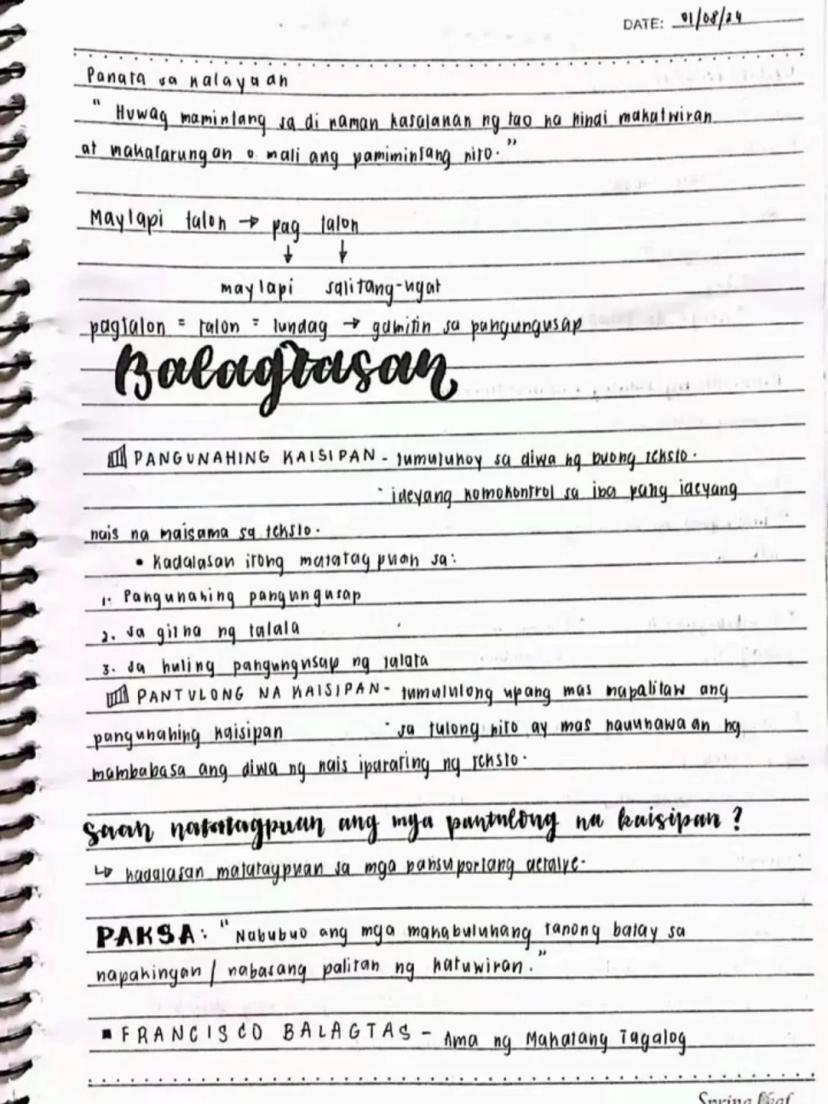 DATE: 01/08/24
Panata sa kalayaan
" Huwag mamintang sa di naman kasalanan ng tao na hindi makatwiran
at makatarungan o mali ang pamimintang nito. "
Maylapi talon → pag talon
↓ ↓
maylapi salitang-ugat
pagtalon = talon = lundag → gamitin sa pangungusap
Balagtasan
PANGUNAHING KAISIPAN - tumutukoy sa diwa ng buong teksto.
- ideyang komokontrol sa iba pang ideyang
nais na maisama sa teksto.
• Kadalasan itong matatagpuan sa:
1. Pangunahing pangungusap
2. sa gitna ng talata
3. sa huling pangungusap ng talata
PANTULONG NA KAISIPAN - tumutulong upang mas mapalitaw ang
pangunahing kaisipan - sa tulong nito ay mas nauunawaan ng
mambabasa ang diwa ng nais iparating ng teksto.
Saan natatagpuan ang mga pantulong na kaisipan ?
↳ kadalasan matatagpuan sa mga pansuportang detalye.
PAKSA: " Nabubuo ang mga makabuluhang tanong batay sa
napakingan / nabasang palitan ng katuwiran. "
▪ FRANCISCO BALAGTAS - Ama ng Makatang Tagalog
Spring Leaf